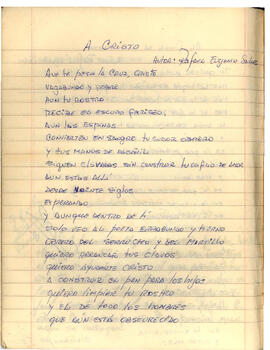 A CRISTO
AUTOR: Rafael Eugenio Salas
AUN TE PESA LA CRUZ, CRISTO
VAGABUNDO Y POBRE
AUN TU ROSTRO
RECIBE EL ESCUPO FARISEO,
AUN LAS ESPINAS
CONVIERTEN EN SANGRE TU SUDOR OBRERO
Y TUS MANOS DE ALBAÑIL
SIGUEN CLAVADAS SIN CONSTRUIR TU CASTILLO DE AMOR
AUN ESTAS ALLI
DESDE VEINTE SIGLOS
ESPERANDO
Y AUNQUE DENTRO DE TI
SOLO VEO AL POETA VAGABUNDO Y TIERNO
OBRERO DEL SERRUCHO Y DEL MARTILLO
QUIERO ARRANCAR TUS CLAVOS
QUIERO AYUDARTE CRISTO
A CONSTRUIR EL PAN PARA LOS HIJOS
QUIERO LIMPIAR TU ROSTRO
Y EL DE TODO LOS HOMBRES
QUE AUN ESTA OBSCURECIDO